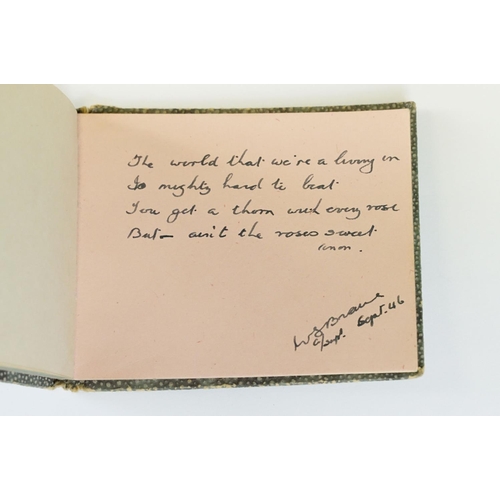 The world that we're a living in
Is mighty hard to beat
You get a thorn with every rose
But - ain't the roses sweet
anon.
Sept. 46